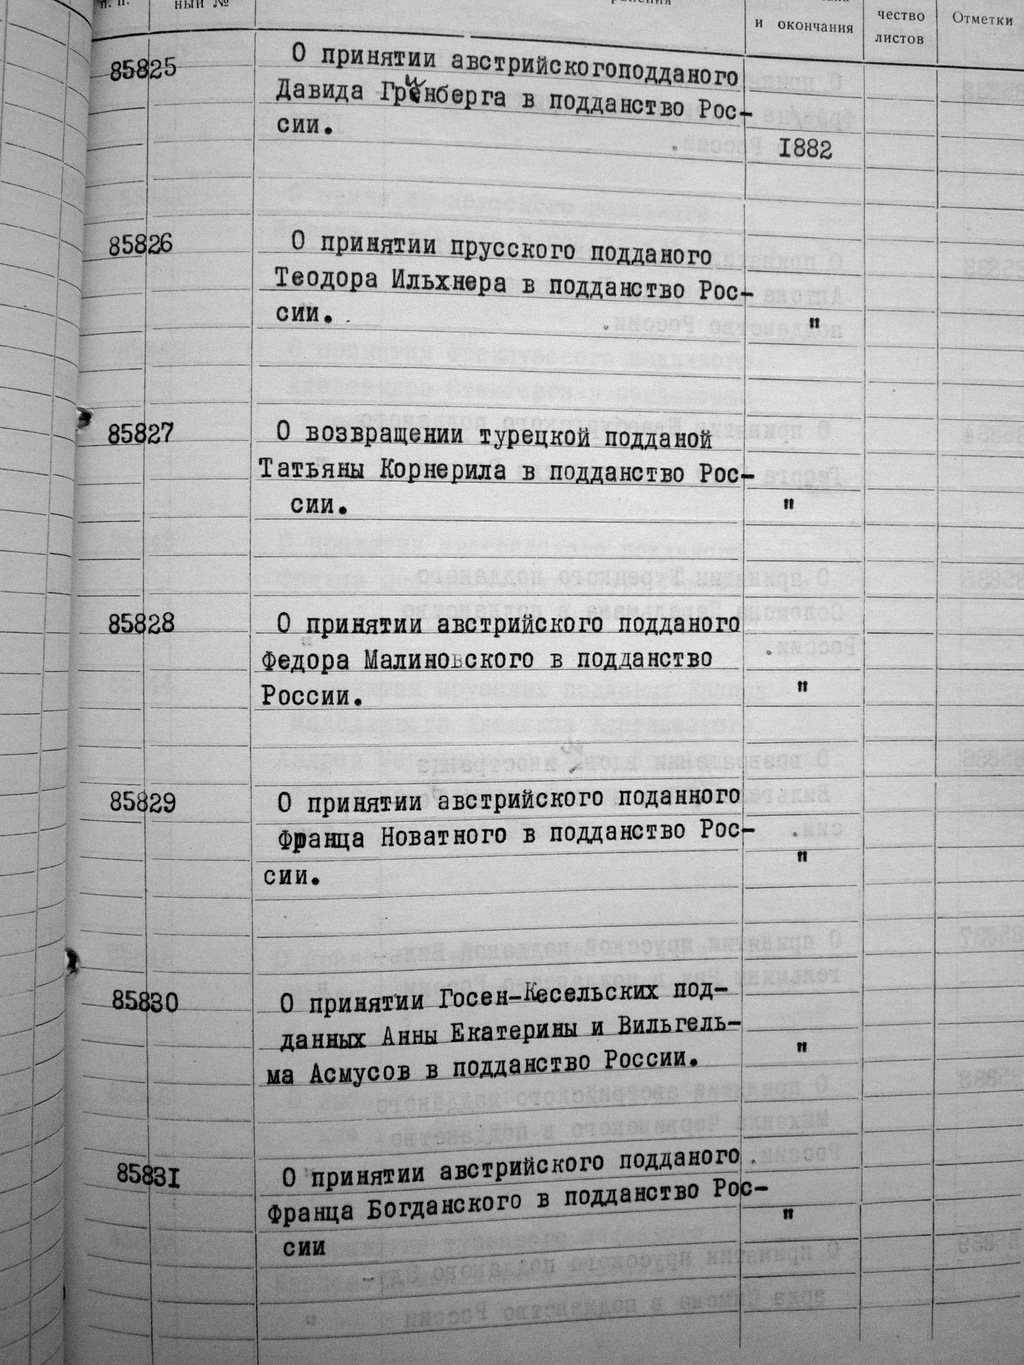 п. п.
ный №
и окончания
чество
листов
Отметки
85825
О принятии австрийскогоподданого
Давида Гринберга в подданство Рос-
сии.
1882
85826
О принятии прусского подданого
Теодора Ильхнера в подданство Рос-
сии.
"
85827
О возвращении турецкой подданой
Татьяны Корнерила в подданство Рос-
сии.
"
85828
О принятии австрийского подданого
Федора Малиновского в подданство
России.
"
85829
О принятии австрийского поданного
Франца Новатного в подданство Рос-
сии.
"
85830
О принятии Госен-Кесельских под-
данных Анны Екатерины и Вильгель-
ма Асмусов в подданство России.
"
85831
О принятии австрийского подданого
Франца Богданского в подданство Рос-
сии
"